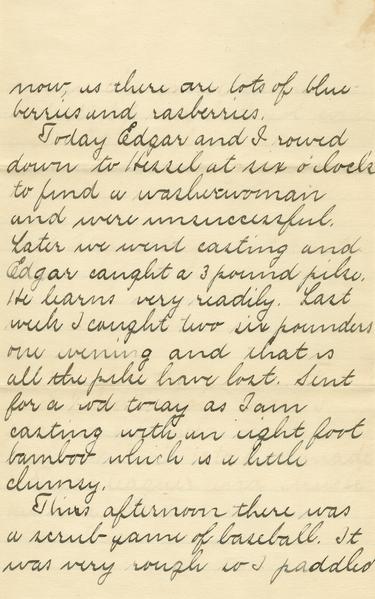 now, as there are lots of blue
berries and rasberries.
Today Edgar and I rowed
down to Hessel at six o'clock
to find a washerwoman
and were unsuccessful.
Later we went casting and
Edgar caught a 3 pound pike.
He learns very readily. Last
week I caught two six pounders
one evening and that is
all the pike have lost. Sent
for a rod today as I am
casting with an eight foot
bamboo which is a little
clumsy.
This afternoon there was
a scrub game of baseball. It
was very rough so I paddled